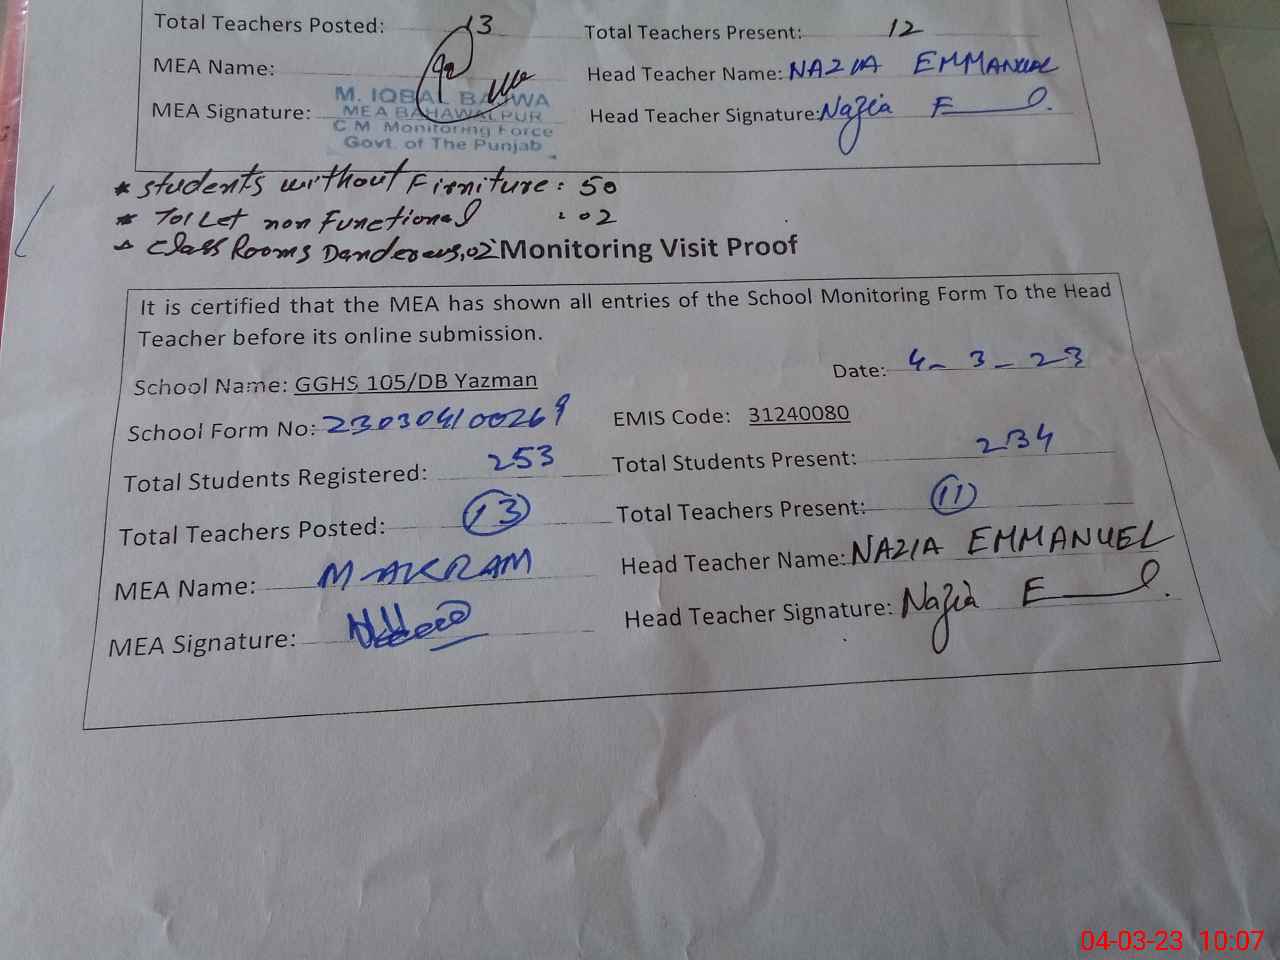 Total Teachers Posted: 13 Total Teachers Present: 12
MEA Name: Head Teacher Name: NAZIA EMMANUEL
MEA Signature: Head Teacher Signature: Nazia E
M. IQBAL BAJWA
MEA BAHAWALPUR
C M Monitoring Force
Govt. of The Punjab
* Students without Firniture: 50
* Toilet non Functional : 02
* Class Rooms Danderous, 02
Monitoring Visit Proof
It is certified that the MEA has shown all entries of the School Monitoring Form To the Head
Teacher before its online submission.
School Name: GGHS 105/DB Yazman Date: 4-3-23
School Form No: 230304100269 EMIS Code: 31240080
Total Students Registered: 253 Total Students Present: 234
Total Teachers Posted: 13 Total Teachers Present: 11
MEA Name: M-AKRAM Head Teacher Name: NAZIA EMMANUEL
MEA Signature: Head Teacher Signature: Nazia E
04-03-23 10:07